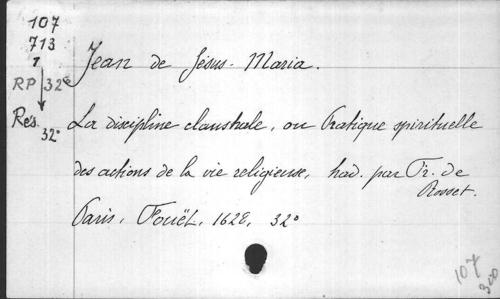 107
713
1
RP 32°
Rés.
32°
Jean de Jésus-Maria.
La discipline claustrale, ou Pratique spirituelle
des actions de la vie religieuse, trad. par Fr. de
Rosset.
Paris, Fouët, 1628, 32°
107
320